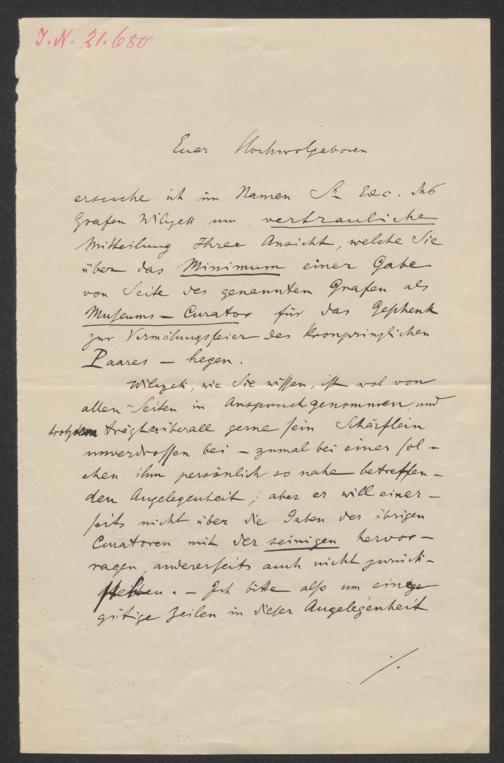 I.N. 21.680
Euer Hochwolgeboren
ersuche ich im Namen Sr Exc. des
Grafen Wilczek um vertrauliche
Mittheilung Ihrer Ansicht, welche Sie
über das Minimum einer Gabe
von Seite des genannten Grafen als
Museums-Curator für das Geschenk
zur Vermälungsfeier des kronprinzlichen
Paares – hegen.
Wilczek, wie Sie wissen, ist wol von
allen Seiten in Anspruch genommen und
trotzdem trägt er überall gerne sein Schärflein
unverdrossen bei – zumal bei einer sol-
chen ihm persönlich so nahe betreffen-
den Angelegenheit; aber er will einer-
seits nicht über die Gaben der übrigen
Curatoren mit der seinigen hervor-
ragen, andererseits auch nicht zurück-
stehen. – Ich bitte also um einige
gütige Zeilen in dieser Angelegenheit
./.